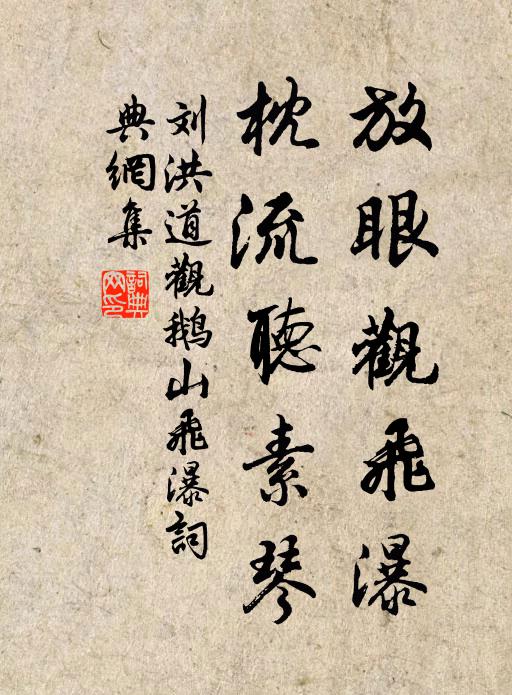 放眼觀飛瀑
枕流聽素琴
刘洪道觀鵝山飛瀑詞
典網集
詞典网印